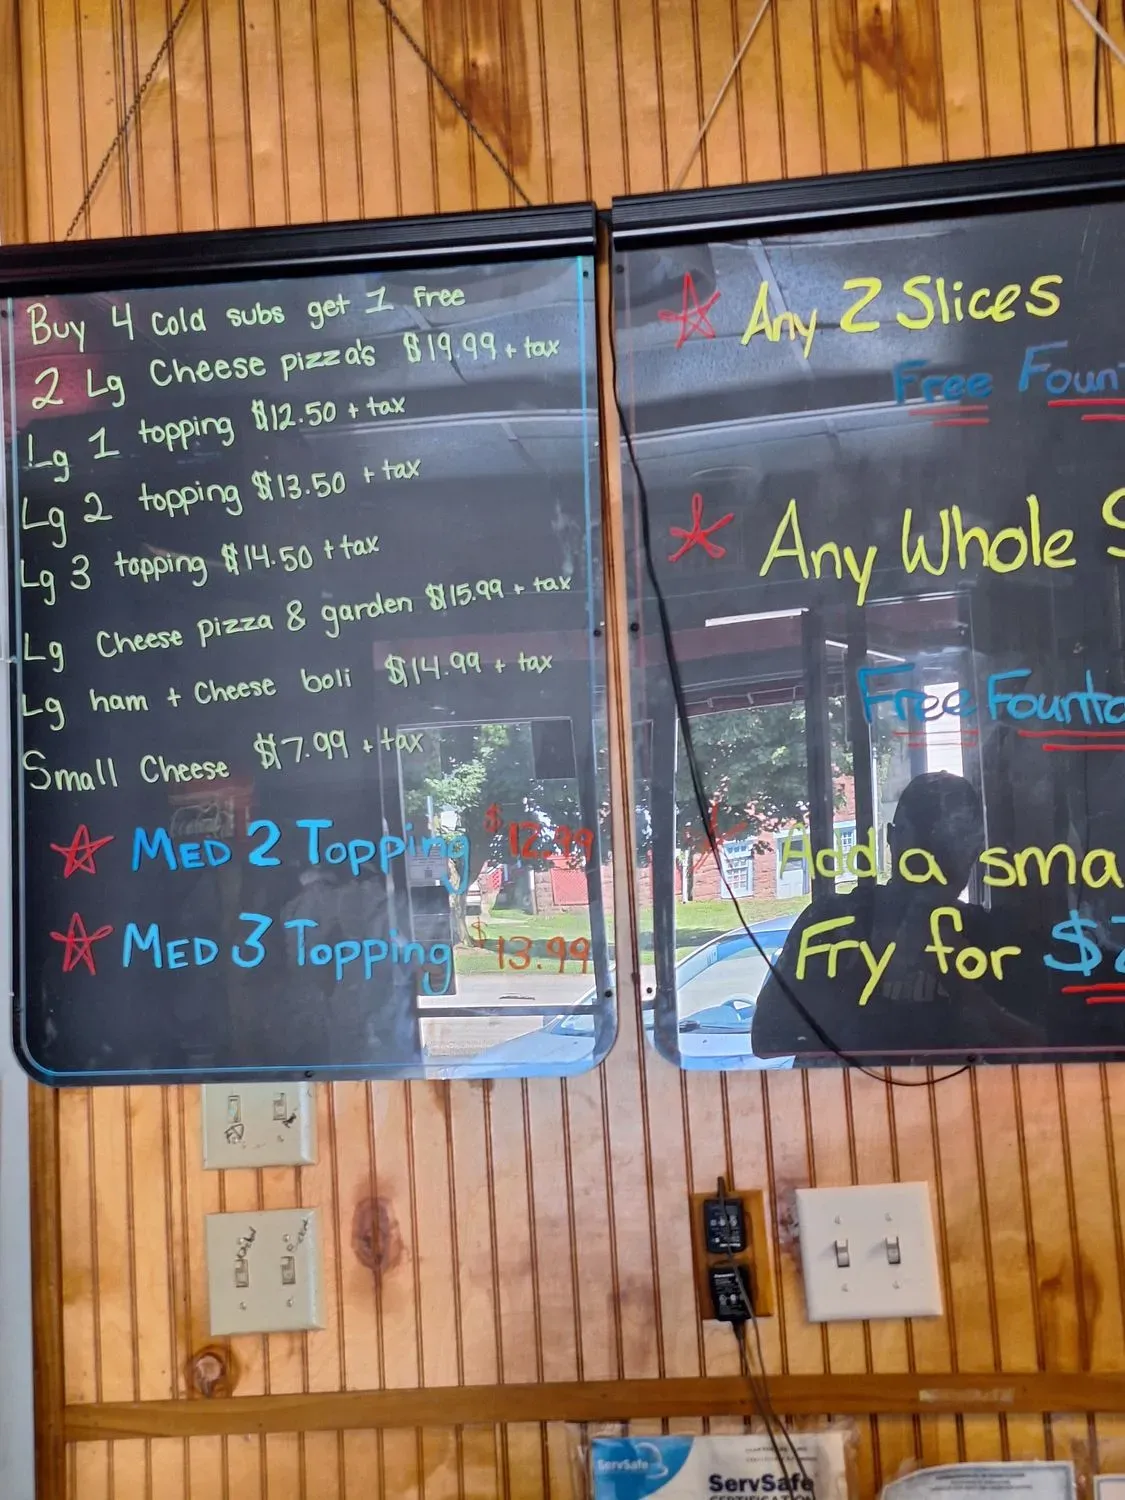 Buy 4 cold subs get 1 free
2 Lg Cheese pizza's $19.99 + tax
Lg 1 topping $12.50 + tax
Lg 2 topping $13.50 + tax
Lg 3 topping $14.50 + tax
Lg Cheese pizza & garden $15.99 + tax
Lg ham + Cheese boli $14.99 + tax
Small Cheese $7.99 + tax
MED 2 Topping $12.99
MED 3 Topping $13.99
Any 2 Slices
Free Foun
Any Whole S
Free Founta
Add a sma
Fry for $2
ServSafe
ServSafe
CERTIFICATION